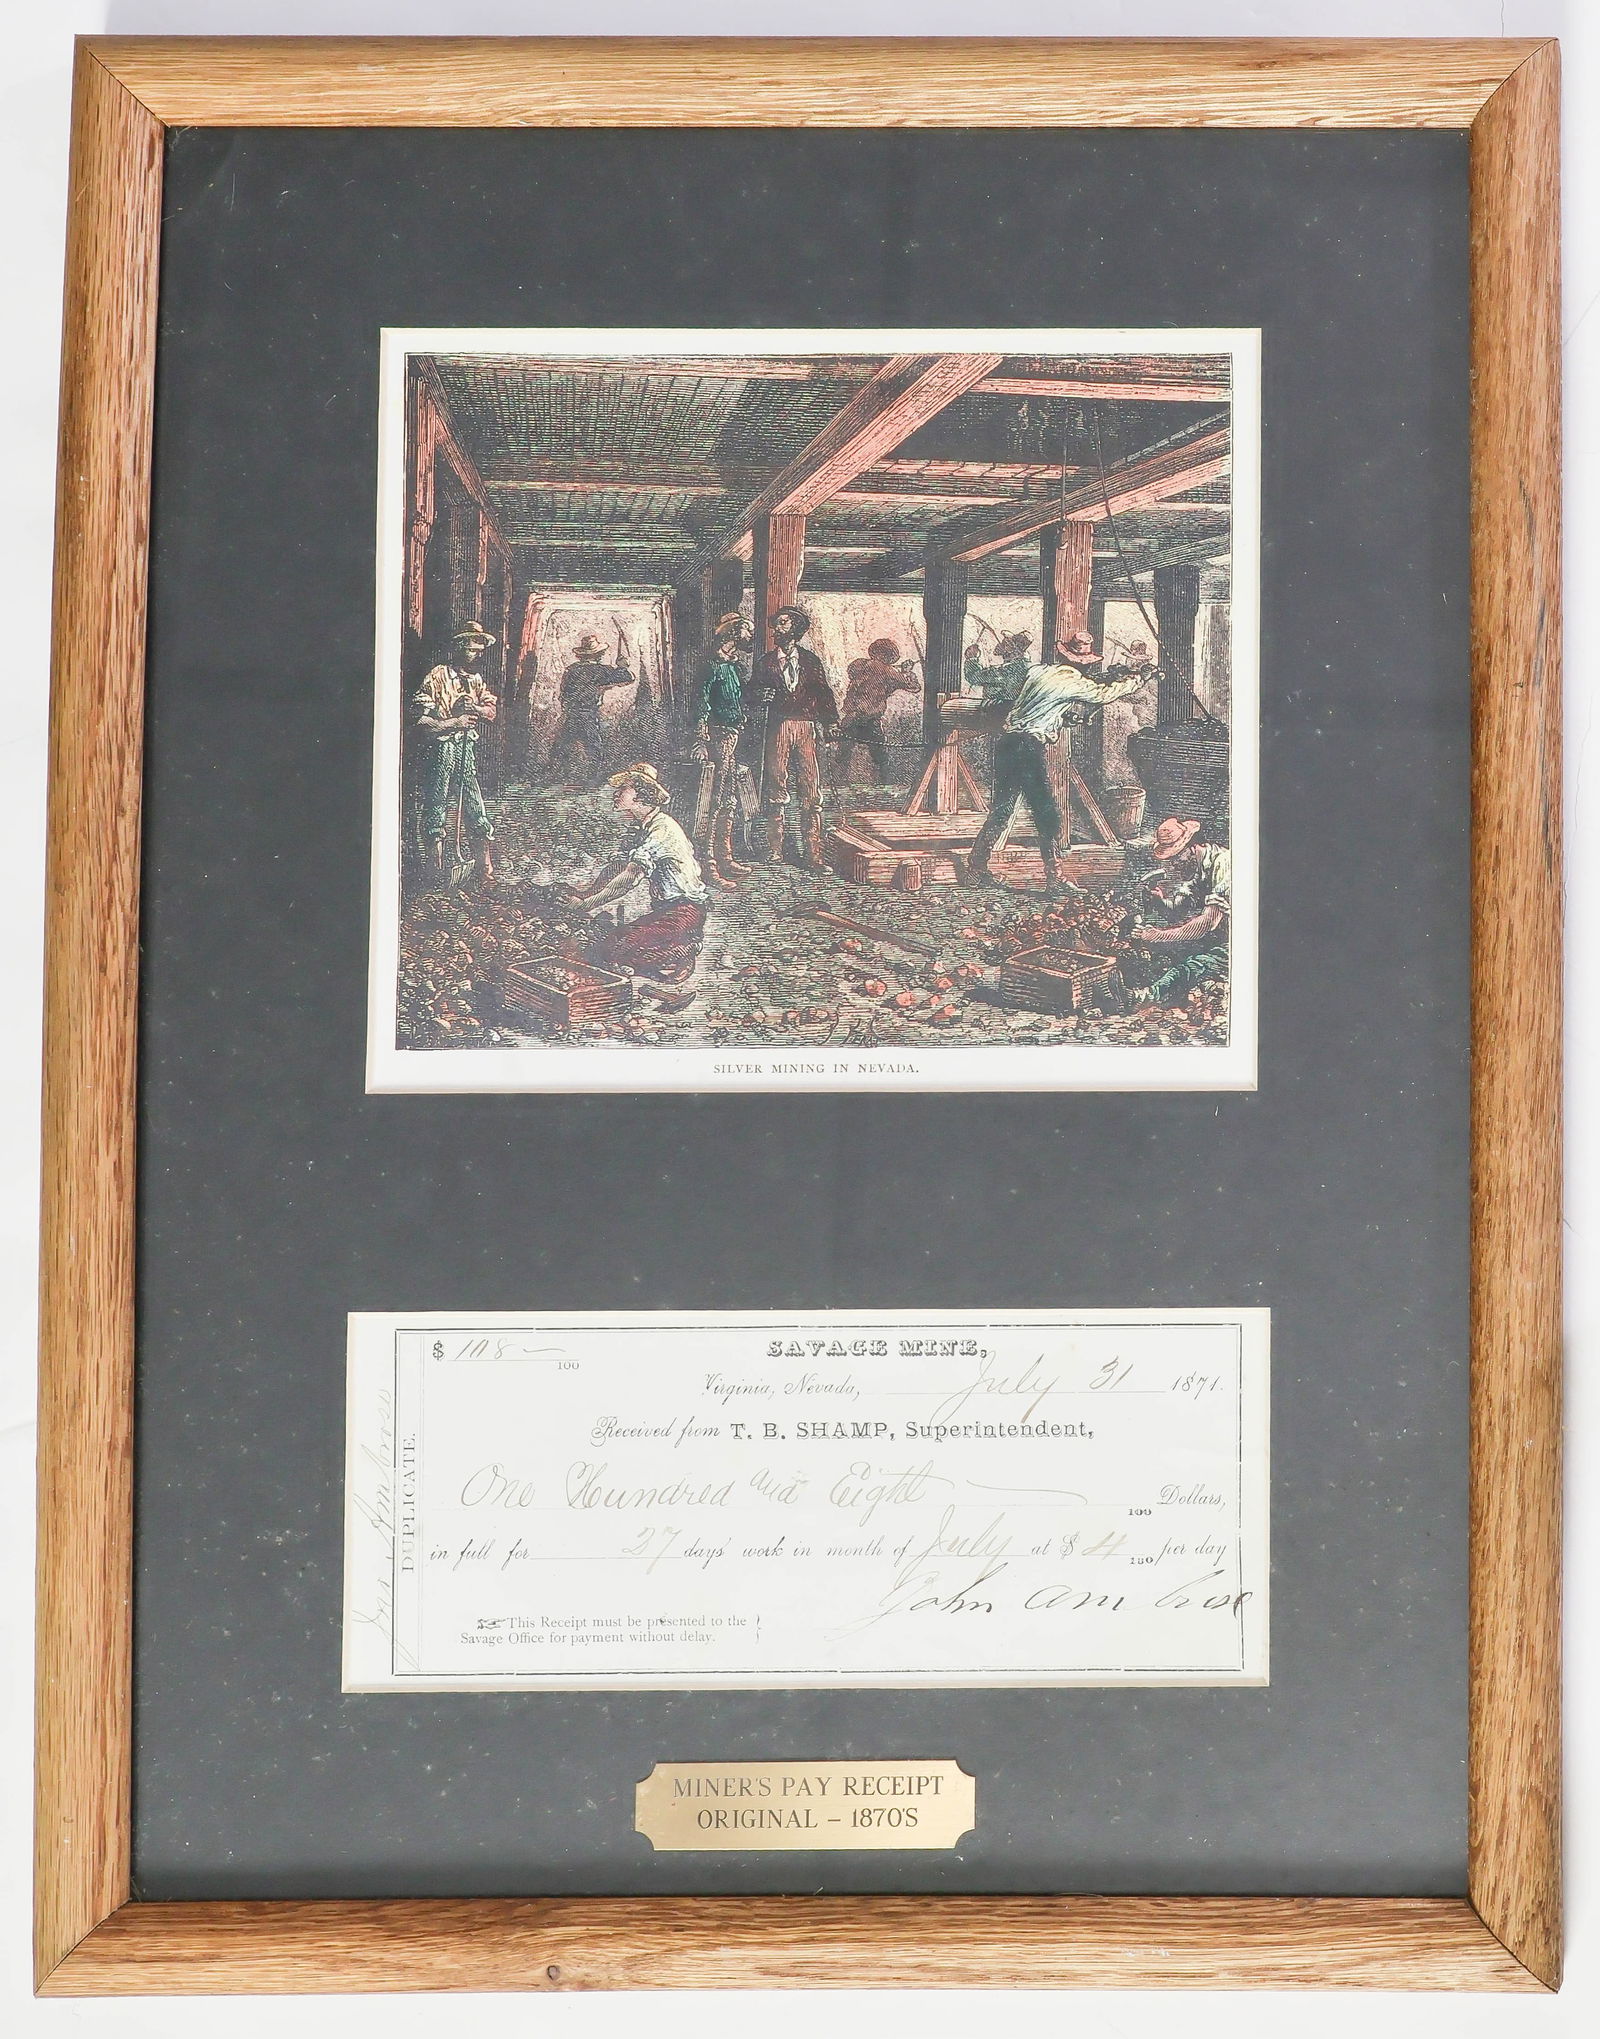 SILVER MINING IN NEVADA.
$ 108 — 100
SAVAGE MINE,
Virginia, Nevada, July 31 1871.
Received from T. B. SHAMP, Superintendent,
One Hundred and Eight 100 Dollars,
in full for 27 days' work in month of July at $ 4 100 per day
John Ambrose
This Receipt must be presented to the
Savage Office for payment without delay.
DUPLICATE.
Jno Ambrose
MINER'S PAY RECEIPT
ORIGINAL – 1870'S